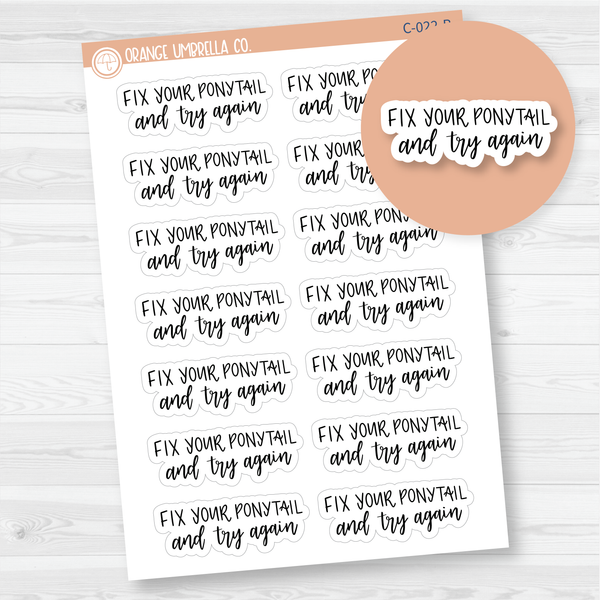 ORANGE UMBRELLA CO.
FIX YOUR PONYTAIL
and try again
FIX YOUR PONYTAIL
and try again
FIX YOUR PONYTAIL
and try again
FIX YOUR PONYTAIL
and try again
FIX YOUR PONYTAIL
and try again
FIX YOUR PONYTAIL
and try again
FIX YOUR PONYTAIL
and try again
FIX YOUR
and try
FIX YOUR
and try
FIX YOUR PONYTAIL
and try again
FIX YOUR PONYTAIL
and try again
FIX YOUR PONYTAIL
and try again
FIX YOUR PONYTAIL
and try again
FIX YOUR PONYTAIL
and try again
FIX YOUR PONYTAIL
and try again